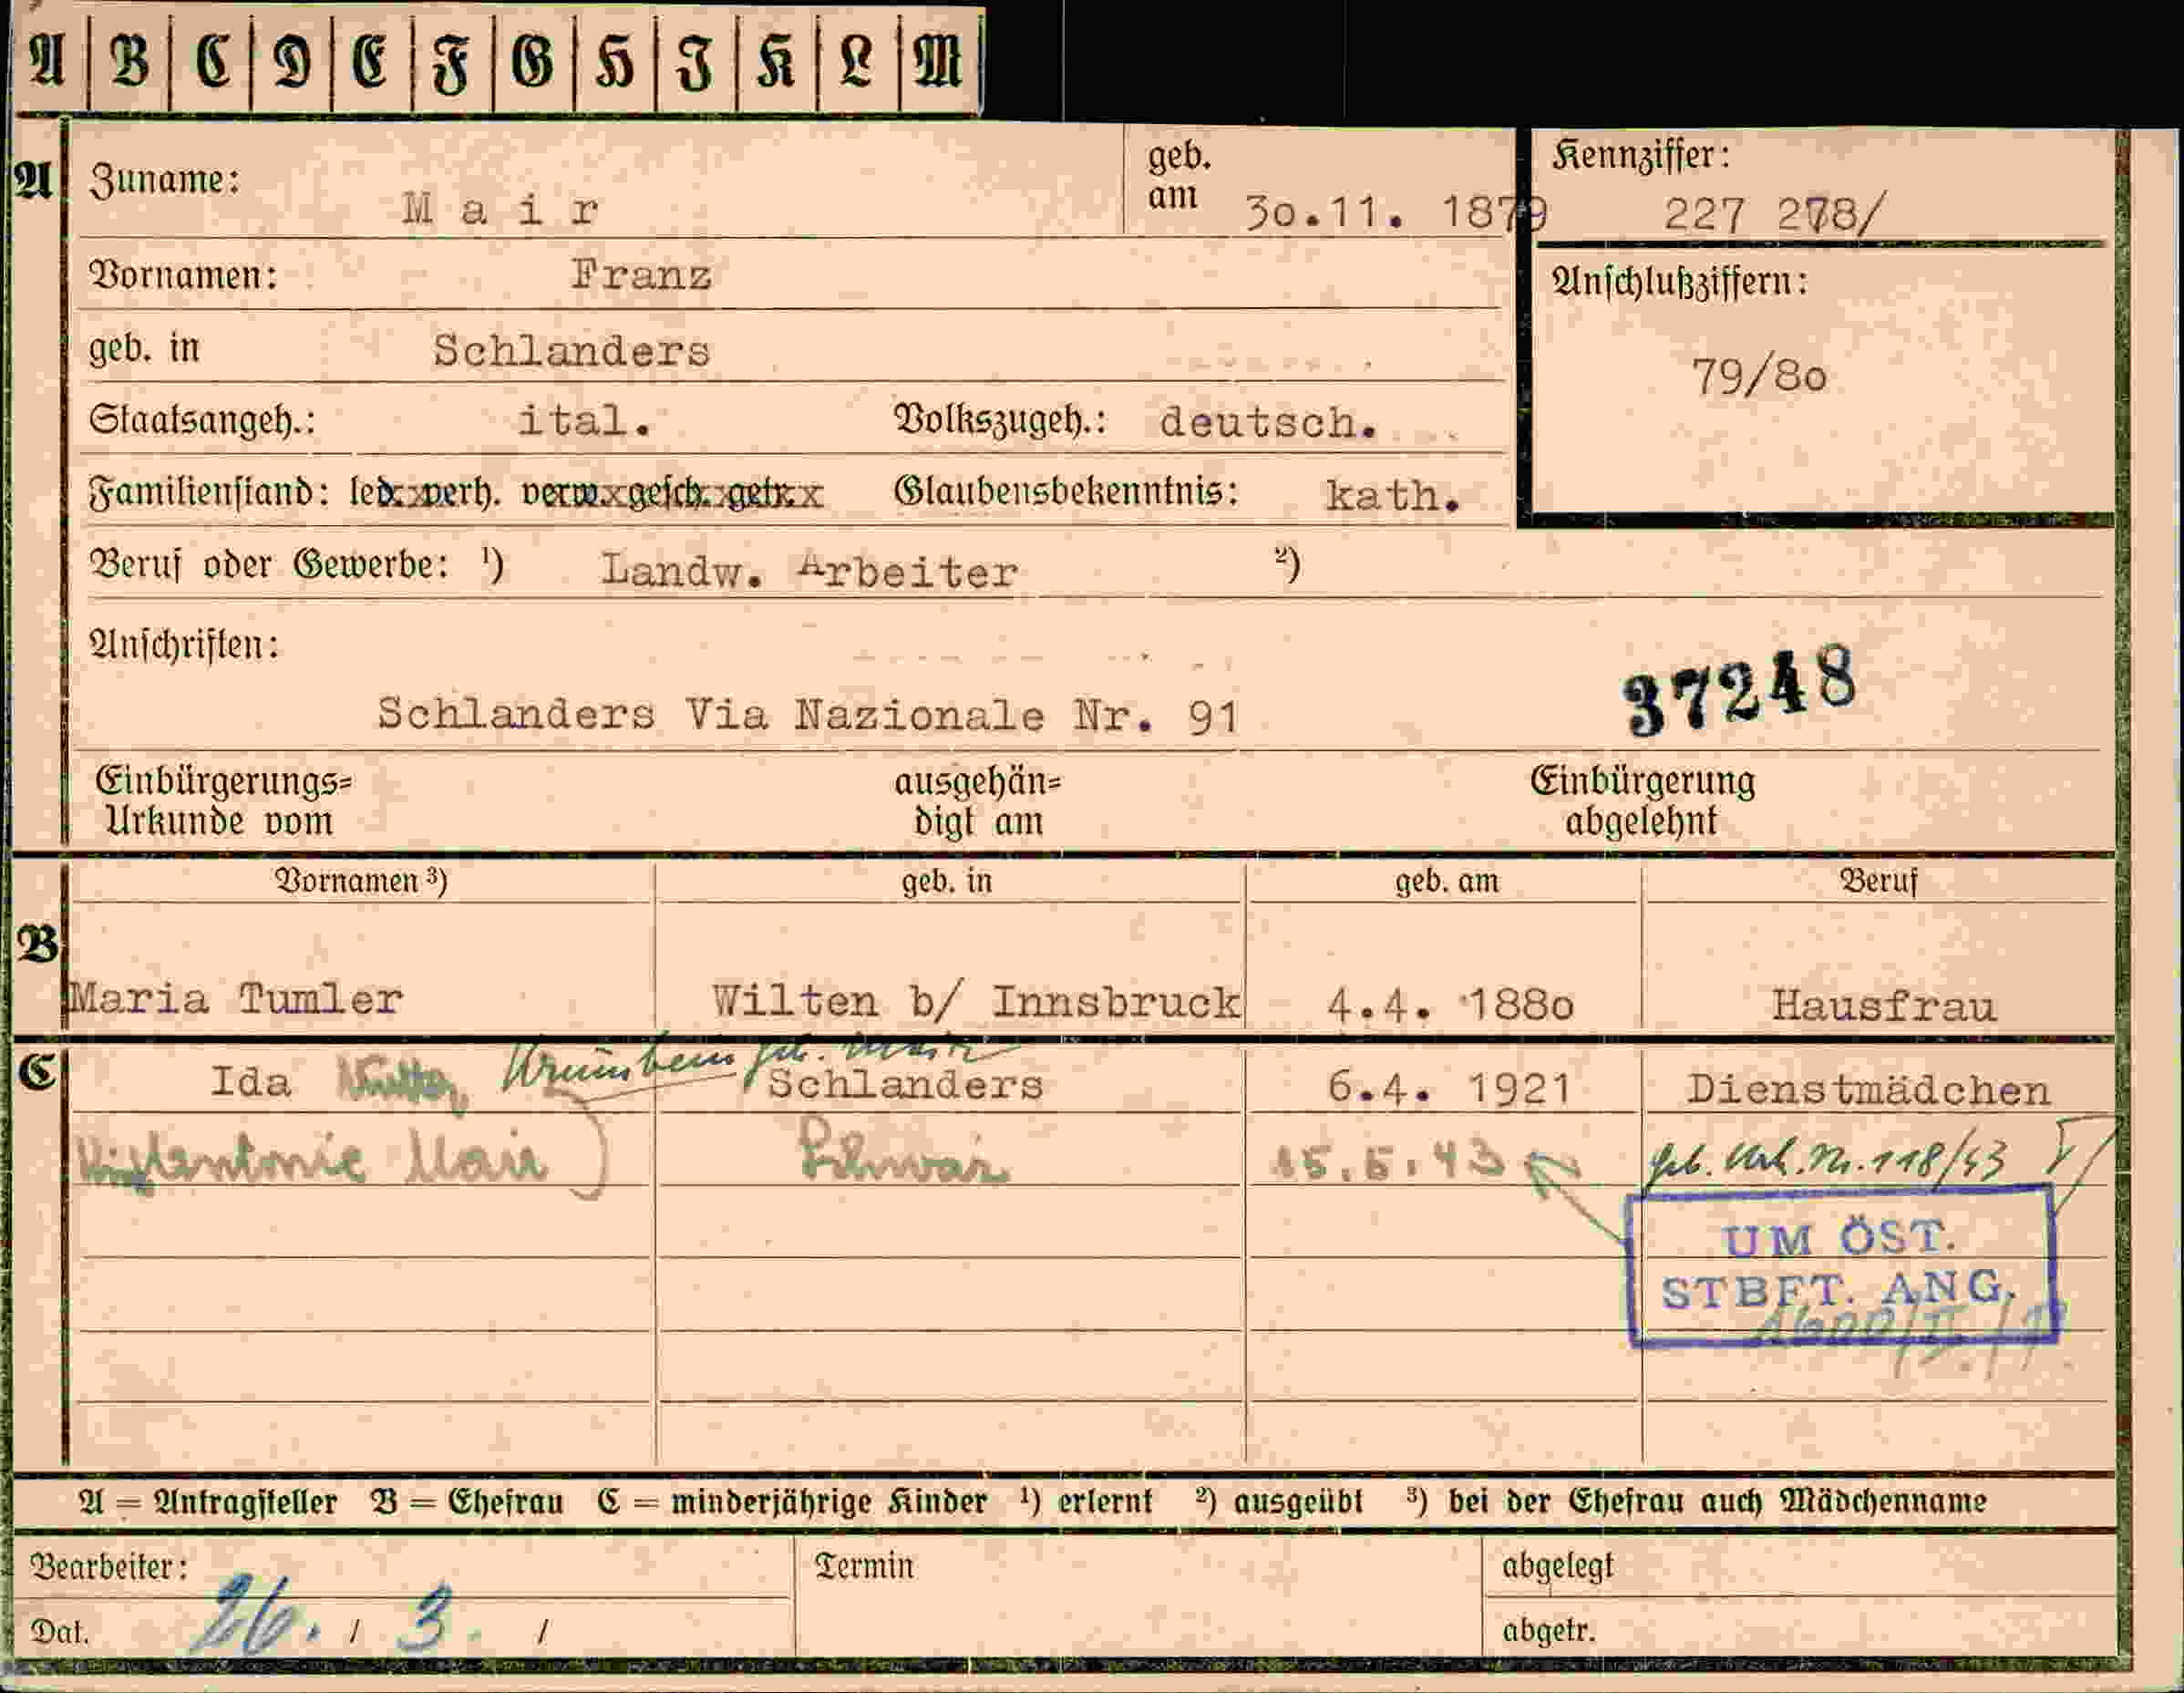 A B C D E F G H I K L M
A Zuname: Mair geb. am 30.11. 1879 Kennziffer: 227 278/
Vornamen: Franz Anschlußziffern:
geb. in Schlanders 79/80
Staatsangeh.: ital. Volkszugeh.: deutsch.
Familienstand: led. verh. verw. gesch. getr. Glaubensbekenntnis: kath.
Beruf oder Gewerbe: ¹) Landw. Arbeiter ²)
Anschriften:
37248
Schlanders Via Nazionale Nr. 91
Einbürgerungs= ausgehän= Einbürgerung
Urkunde vom digt am abgelehnt
Vornamen ³) geb. in geb. am Beruf
B
Maria Tumler Wilten b/ Innsbruck 4.4. 1880 Hausfrau
C Ida geb. Mair Schlanders 6.4. 1921 Dienstmädchen
Mair 15.5.43 geb. Urk. Nr. 118/43
UM ÖST.
STBFT. ANG.
A = Antragsteller B = Ehefrau C = minderjährige Kinder ¹) erlernt ²) ausgeübt ³) bei der Ehefrau auch Mädchenname
Bearbeiter: Termin abgelegt
Dat. 26. / 3. / abgetr.